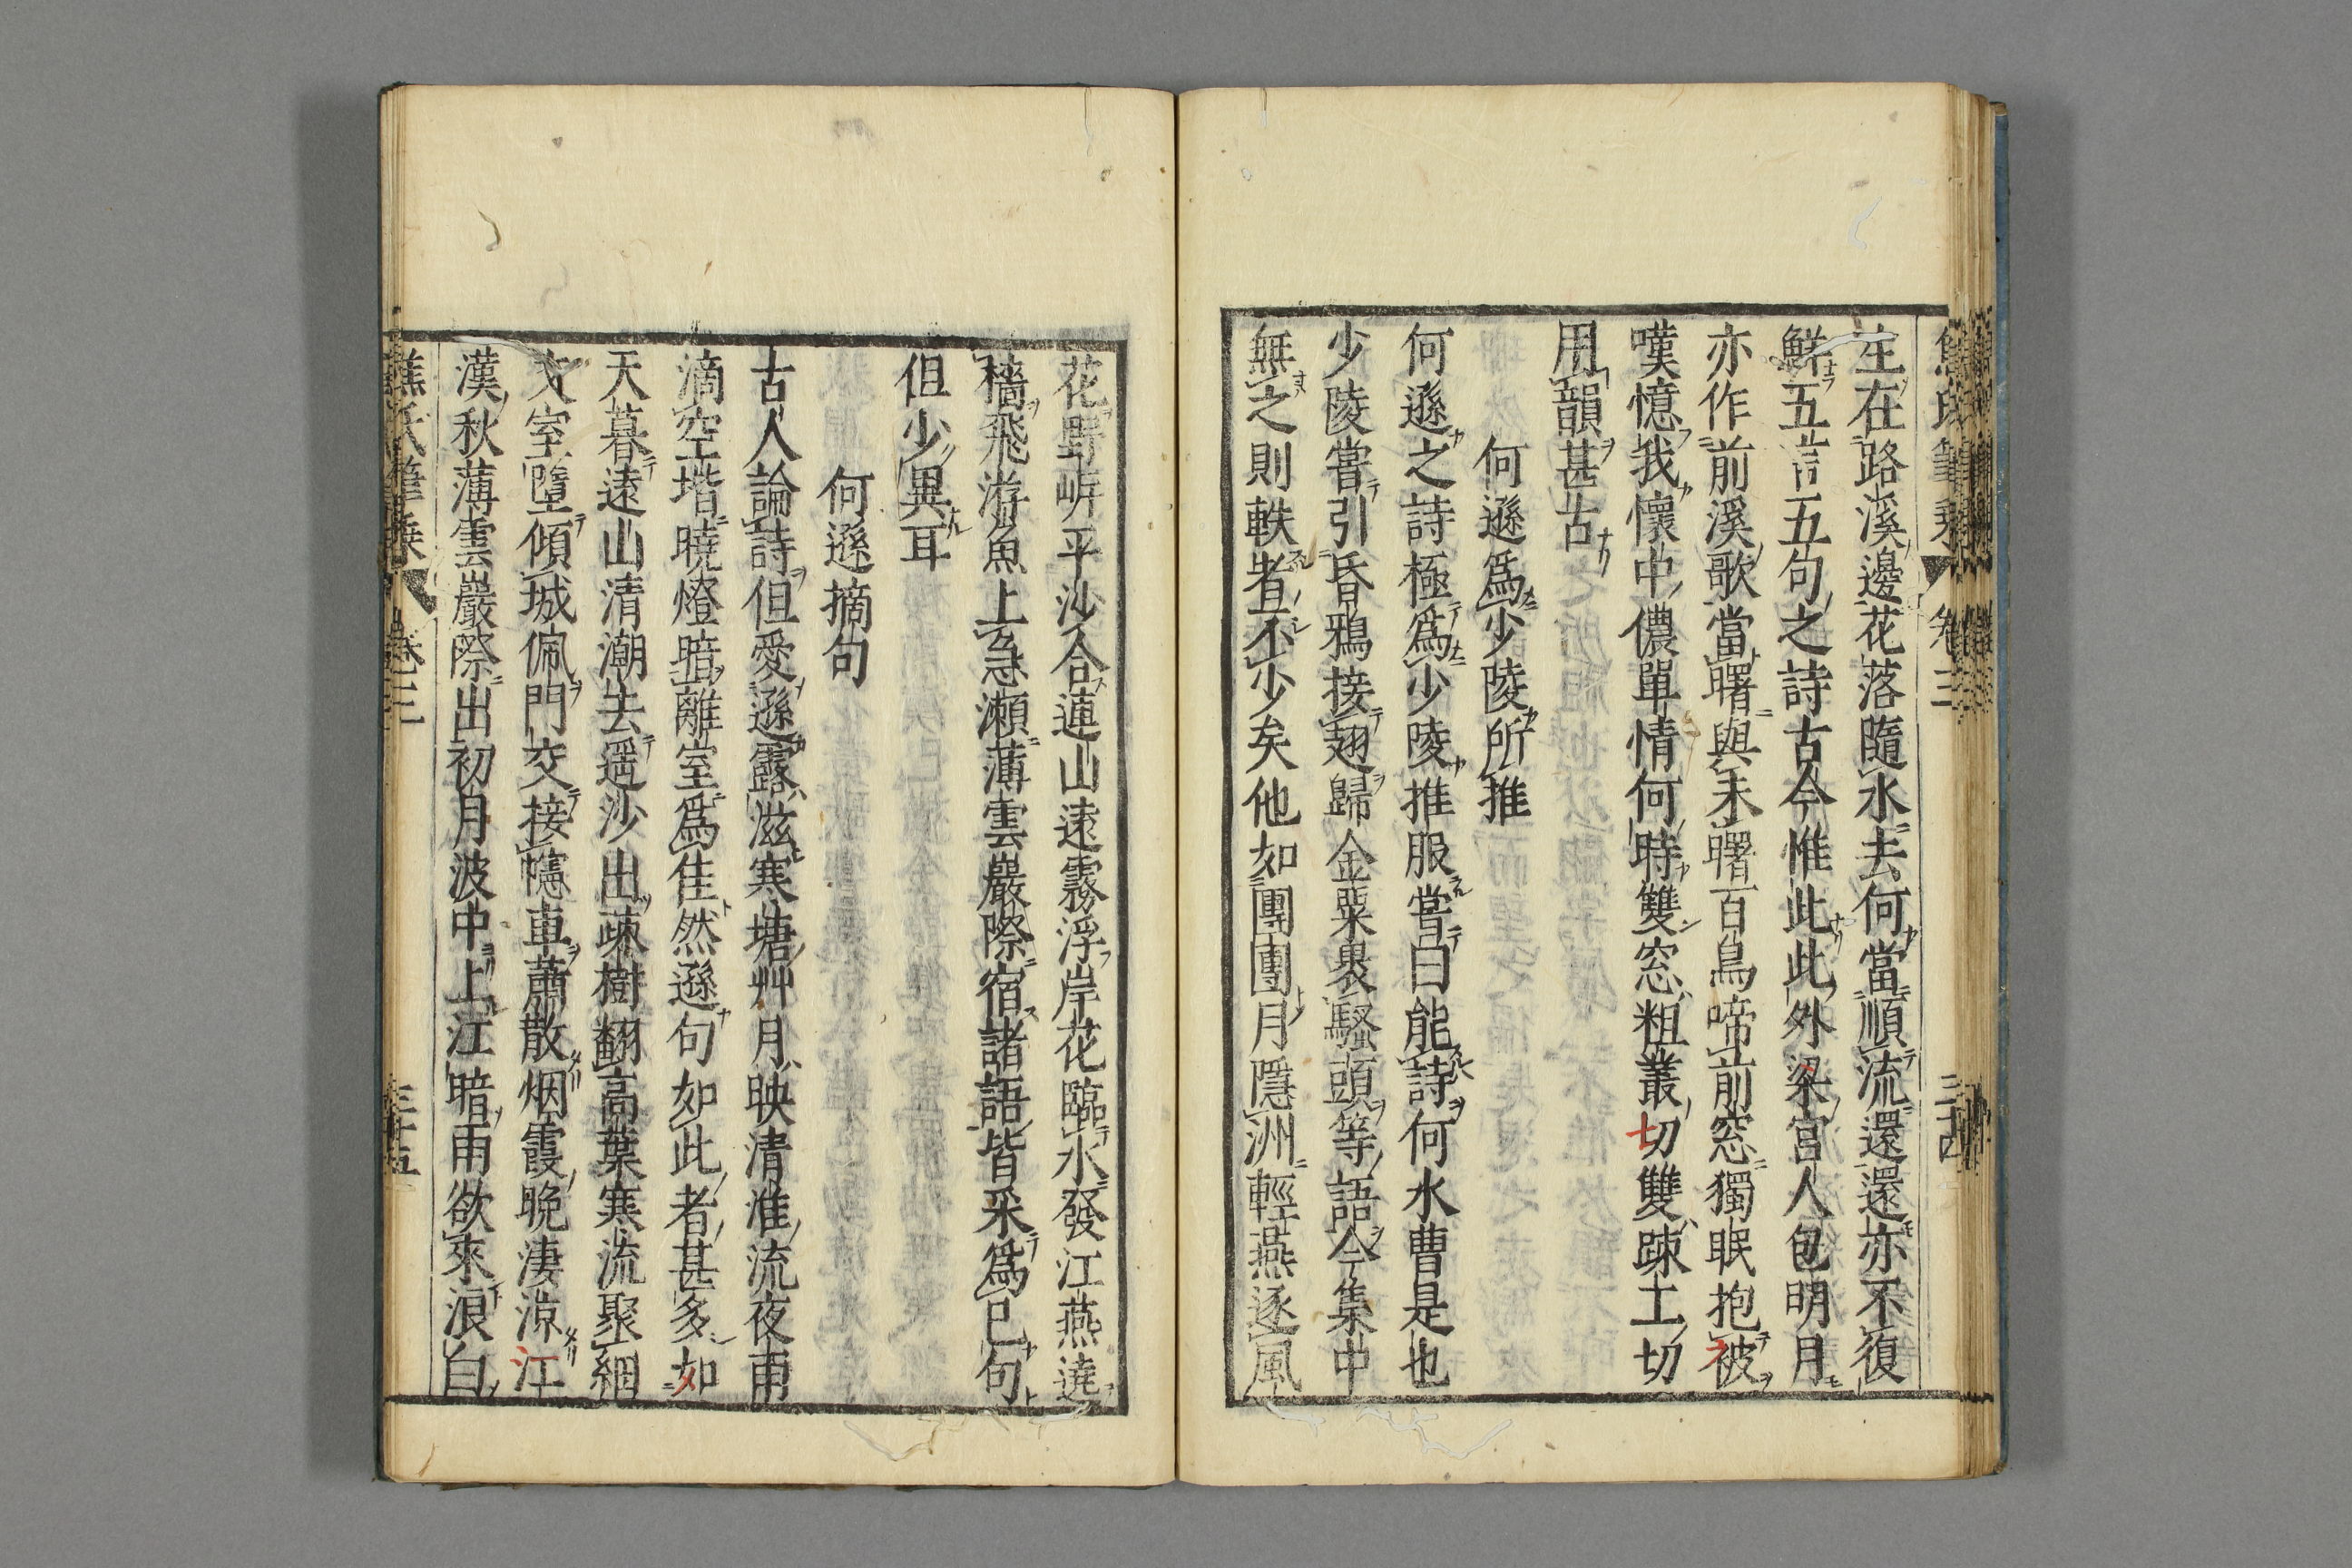 焦氏筆乘 卷三 三十四
生在路溪邊花落隨水去何當順流還還亦不復
鮮五言五句之詩古今惟此此外梁宮人包明月
亦作前溪歌當曙與未曙百鳥啼前窓獨眠抱被
嘆憶我懷中儂單情何時雙窓粗叢切雙踈工切
用韻甚古
何遜爲少陵所推
何遜之詩極爲少陵推服嘗曰能詩何水曹是也
少陵嘗引昏鴉接翅歸金粟裹騷頭等語今集中
無之則軼者不少矣他如團團月隱洲輕燕逐風
花野岸平沙合連山遠霧浮岸花臨水發江燕遶
檣飛游魚上急瀬薄雲巖際宿諸語皆采爲已句
但少異耳
何遜摘句
古人論詩但愛遜露滋寒塘艸月映清淮流夜雨
滴空堦曉燈暗離室爲佳然遜句如此者甚多如
天暮遠山清潮去遥沙出踈樹翻高葉寒流聚細
文室墮傾城佩門交接幰車蕭散烟霞晚淒涼江
漢秋薄雲巖際出初月波中上江暗雨欲來浪白
焦氏筆乘 卷三 三十五